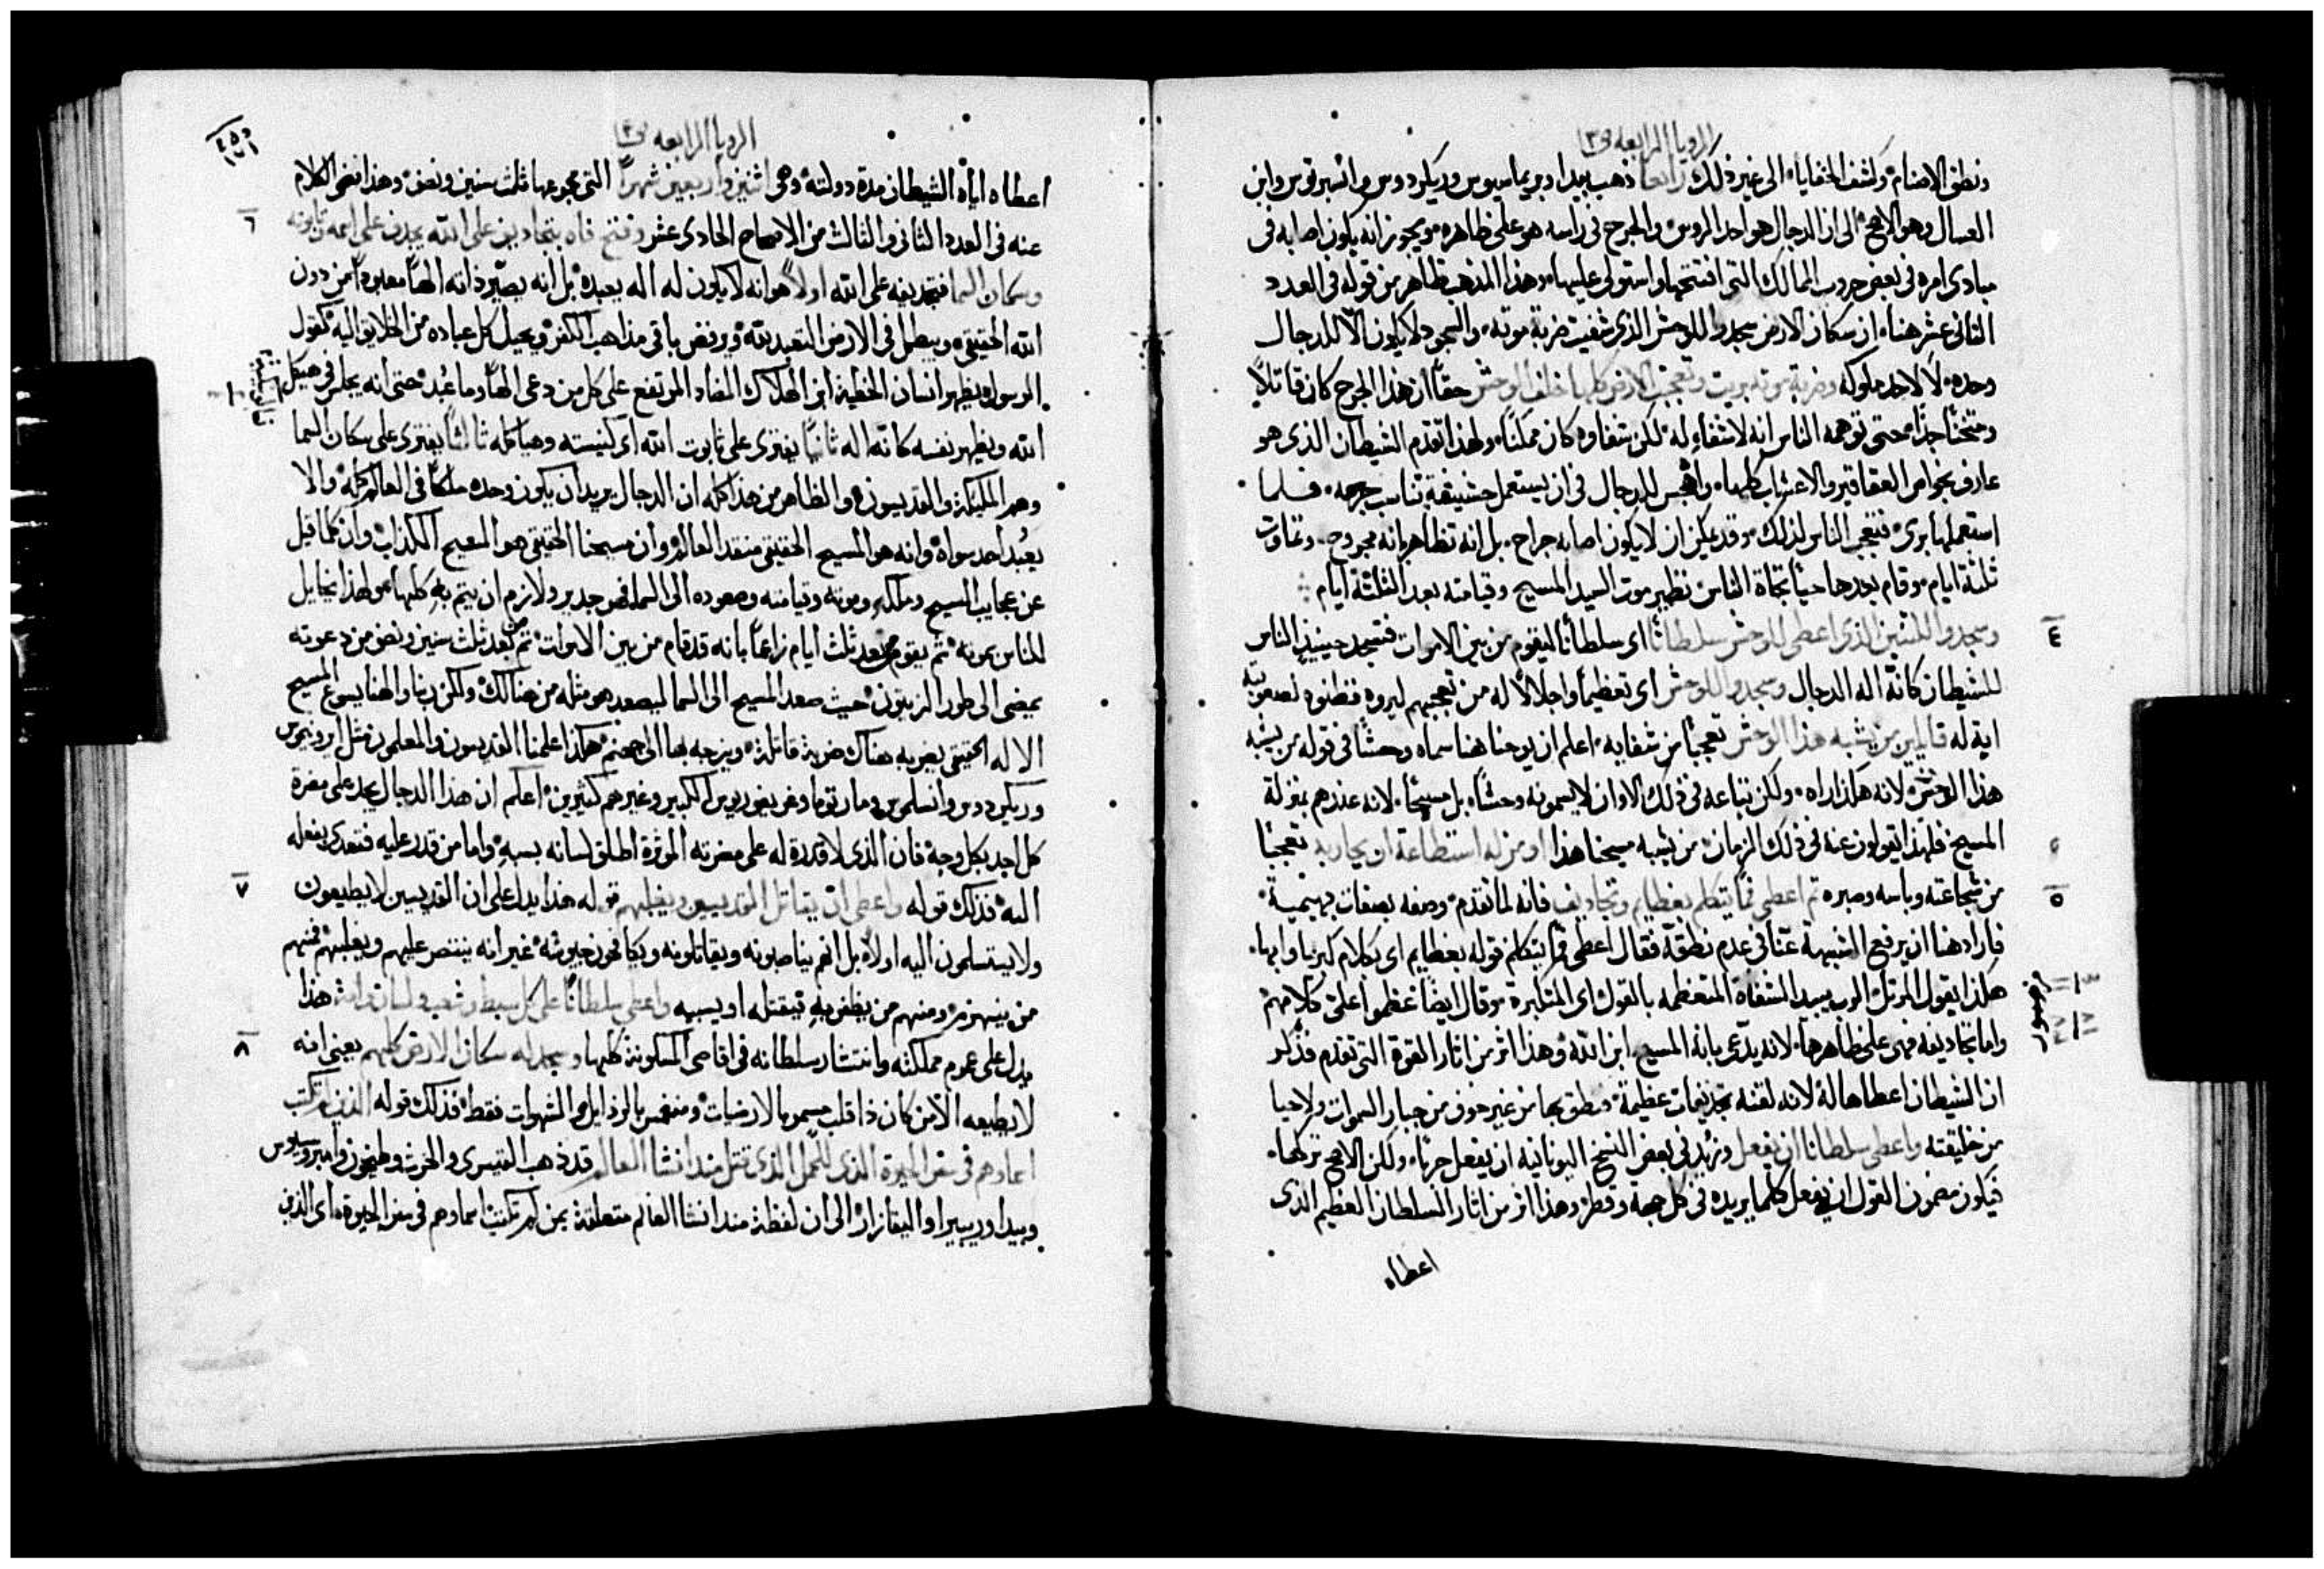 الرويا الرابعه ص١٣
ونطق الاصنام وكشف الخفايا الى غير ذلك رابعاً ذهب بيدا وبريماسيوس وريكردوس وانسبرتوس وابن
العسال وهو الاصح الى ان الدجال هو احد الروس والجرح في راسه هو على ظاهره ويجوز انه يكون اصابه في
مبادى امره في بعض حروب الممالك التي افتتحها واستولى عليها وهذا المذهب ظاهر من قوله في العدد
الثاني عشر هنا ان سكان الارض سجدوا للوحش الذي شفيت ضربة موته والسجود لا يكون الّا للدجال
وحده لا لاحد ملوكه وضربة موته بريت وتعجبت الارض كلها خلف الوحش حقاً ان هذا الجرح كان قاتلاً
ومثخناً جداً حتى توهمه الناس انه لا شفاء له لكن شفاوه كان ممكناً ولهذا تقدم الشيطان الذي هو
عارف بخواص العقاقير والاعشاب كلها واهجس للدجال في ان يستعمل حشيشة تناسب جرحه فلما
استعملها برى فتعجب الناس لذلك وقد يمكن ان لا يكون اصابه جراح بل انه تظاهر بانه مجروح وتماوت
ثلثة ايام وقام بعدها حياً تجاة الناس نظير موت السيد المسيح وقيامته بعد الثلثة ايام
٤ وسجدوا للتنين الذي اعطى للوحش سلطاناً اى سلطاناً ليقوم من بين الاموات فتسجد حينيذٍ الناس
للشيطان كانّه اله الدجال وسجدوا للوحش اى تعظيماً واجلالاً له من تعجبهم لبروه فظنوه لصعوبته
اية له قايلين من يشبه هذا الوحش تعجباً من شفايه اعلم ان يوحنا هنا سماه وحشاً في قوله من يشبه
هذا الوحش لانه هكذا راه ولكن تباعه في ذلك الاوان لا يسمونه وحشاً بل مسيحاً لانه عندهم بمنزلة
المسيح فلهذا يقولون عنه في ذلك الزمان من يشبه مسيحنا هذا او من له استطاعة او يحاربه تعجباً
٥ من شجاعته وباسه وصبره ثم اعطي فماً يتكلم بعظايم وتجاديف فانه لما تقدم وصفه بصفات بهيمية
فاراد هنا ان يرفع الشبهة عنّا في عدم نطقه فقال اعطي فماً يتكلم قوله بعظايم اى بكلام كبريا وابها
هكذا يقول المرتل الرب يبيد الشفاة المتعظمه بالقول اى المتكبرة وقال ايضاً عظموا على كلامهم
واما تجاديفه فهي على ظاهرها لانه يدّعى بانه المسيح ابن الله وهذا اثر من اثار القوة التي تقدم فذكر
ان الشيطان اعطاها له لانه لقنه تجديفات عظيمة فنطق بها من غير خوف من جبار السموات ولا حيا
من خليقته واعطى سلطاناً ان يفعل وزيد في بعض النسخ اليونانيه ان يفعل حرباً ولكن الاصح تركها
فيكون مضمون القول ان يفعل كلما يريده في كل جهة وقطر وهذا اثر من اثار السلطان العظيم الذي
اعطاه
الرويا الرابعه ص١٣
اعطاه اياه الشيطان مدة دولته وهي اثنين واربعين شهراً التي مجموعها ثلث سنين ونصف وهذا نفس الكلام
٦ عنه في العدد الثاني والثالث من الاصحاح الحادى عشر وفتح فاه بتجاديف على الله يجدف على اسمه وتابوته
وسكان السما فتجديفه على الله اولاً هو انه لا يكون له اله يعبده بل انه يصيّر ذاته الهاً معبوداً من دون
الله الحقيقي ويبطل في الارض التعبد لله ويرفض باقى مذاهب الكفر ويحيل كل عباده من الخلايق اليه كقول
الرسول ويظهر انسان الخطية ابن الهلاك المضاد المرتفع على كل من دعى الهاً وما عُبد حتى انه يجلس في هيكل
الله ويظهر نفسه كانّه اله ثانياً يفترى على تابوت الله اى كنيسته وهياكله ثالثاً يفترى على سكان السما
وهم المليكة والقديسون والظاهر من هذا كله ان الدجال يريد ان يكون وحده ملكاً في العالم كله والا
يعُبد احد سواه وانه هو المسيح الحقيقي منقذ العالم وان مسيحنا الحقيقي هو المسيح الكذاب وان كلما قيل
عن عجايب المسيح وملكه وموته وقيامته وصعوده الى السما فهو جدير ولازم ان يتم به كلها ولهذا يخايل
للناس بموته ثم يقوم من بعد ثلث ايام زاعماً بانه قد قام من بين الاموات ثم من بعد ثلث سنين ونصف من دعوته
يمضى الى طور الزيتون حيث صعد المسيح الى السما ليصعد هو مثله من هنالك ولكن ربنا والهنا يسوع المسيح
الاله الحقيقي يضربه هناك ضربة قاتلة ويزجه بها الى جهنم هكذا علمنا القديسون والمعلمون مثل ايرونيموس
وريكردوس وانسلموس ومار توما وغريغوريوس الكبير وغيرهم كثيرين اعلم ان هذا الدجال يجد على مضرة
كل احد بكل وجه فان الذي لا قدرة له على مضرته الموثرة اطلق لسانه بسبه واما من قدر عليه فتعدى بفعله
٧ اليه فذلك قوله واعطى ان يقاتل القديسين ويغلبهم قوله هذا يدل على ان القديسين لا يطيعون
ولا يستسلمون اليه اولاً بل انهم يناصبونه ويقاتلونه ويكافحون جيوشه غير انه ينتصر عليهم ويغلبهم فمنهم
من ينهزم ومنهم من يظفر به فيقتله او يسبيه واعطى سلطاناً على كل سبط وشعب ولسان وامة هذا
٨ يدل على عموم مملكته وانتشار سلطانه في اقاصى المسكونة كلها وسجد له سكان الارض كلهم يعنى انه
لا يطيعه الّا من كان ذا قلب مسمر بالارضيات ومنغمس بالرذايل والشهوات فقط فذلك قوله الذين لم تكتب
اسماوهم في سفر الحيوة الذي للحمل الذي قتل منذ انشا العالم قد ذهب القيسرى والحرث وطيخون وامبروسيوس
وبيدا وريبيرا واليقازار الى ان لفظة منذ انشا العالم متعلقة بمن لم تكتب اسماوهم في سفر الحيوة اى الذين